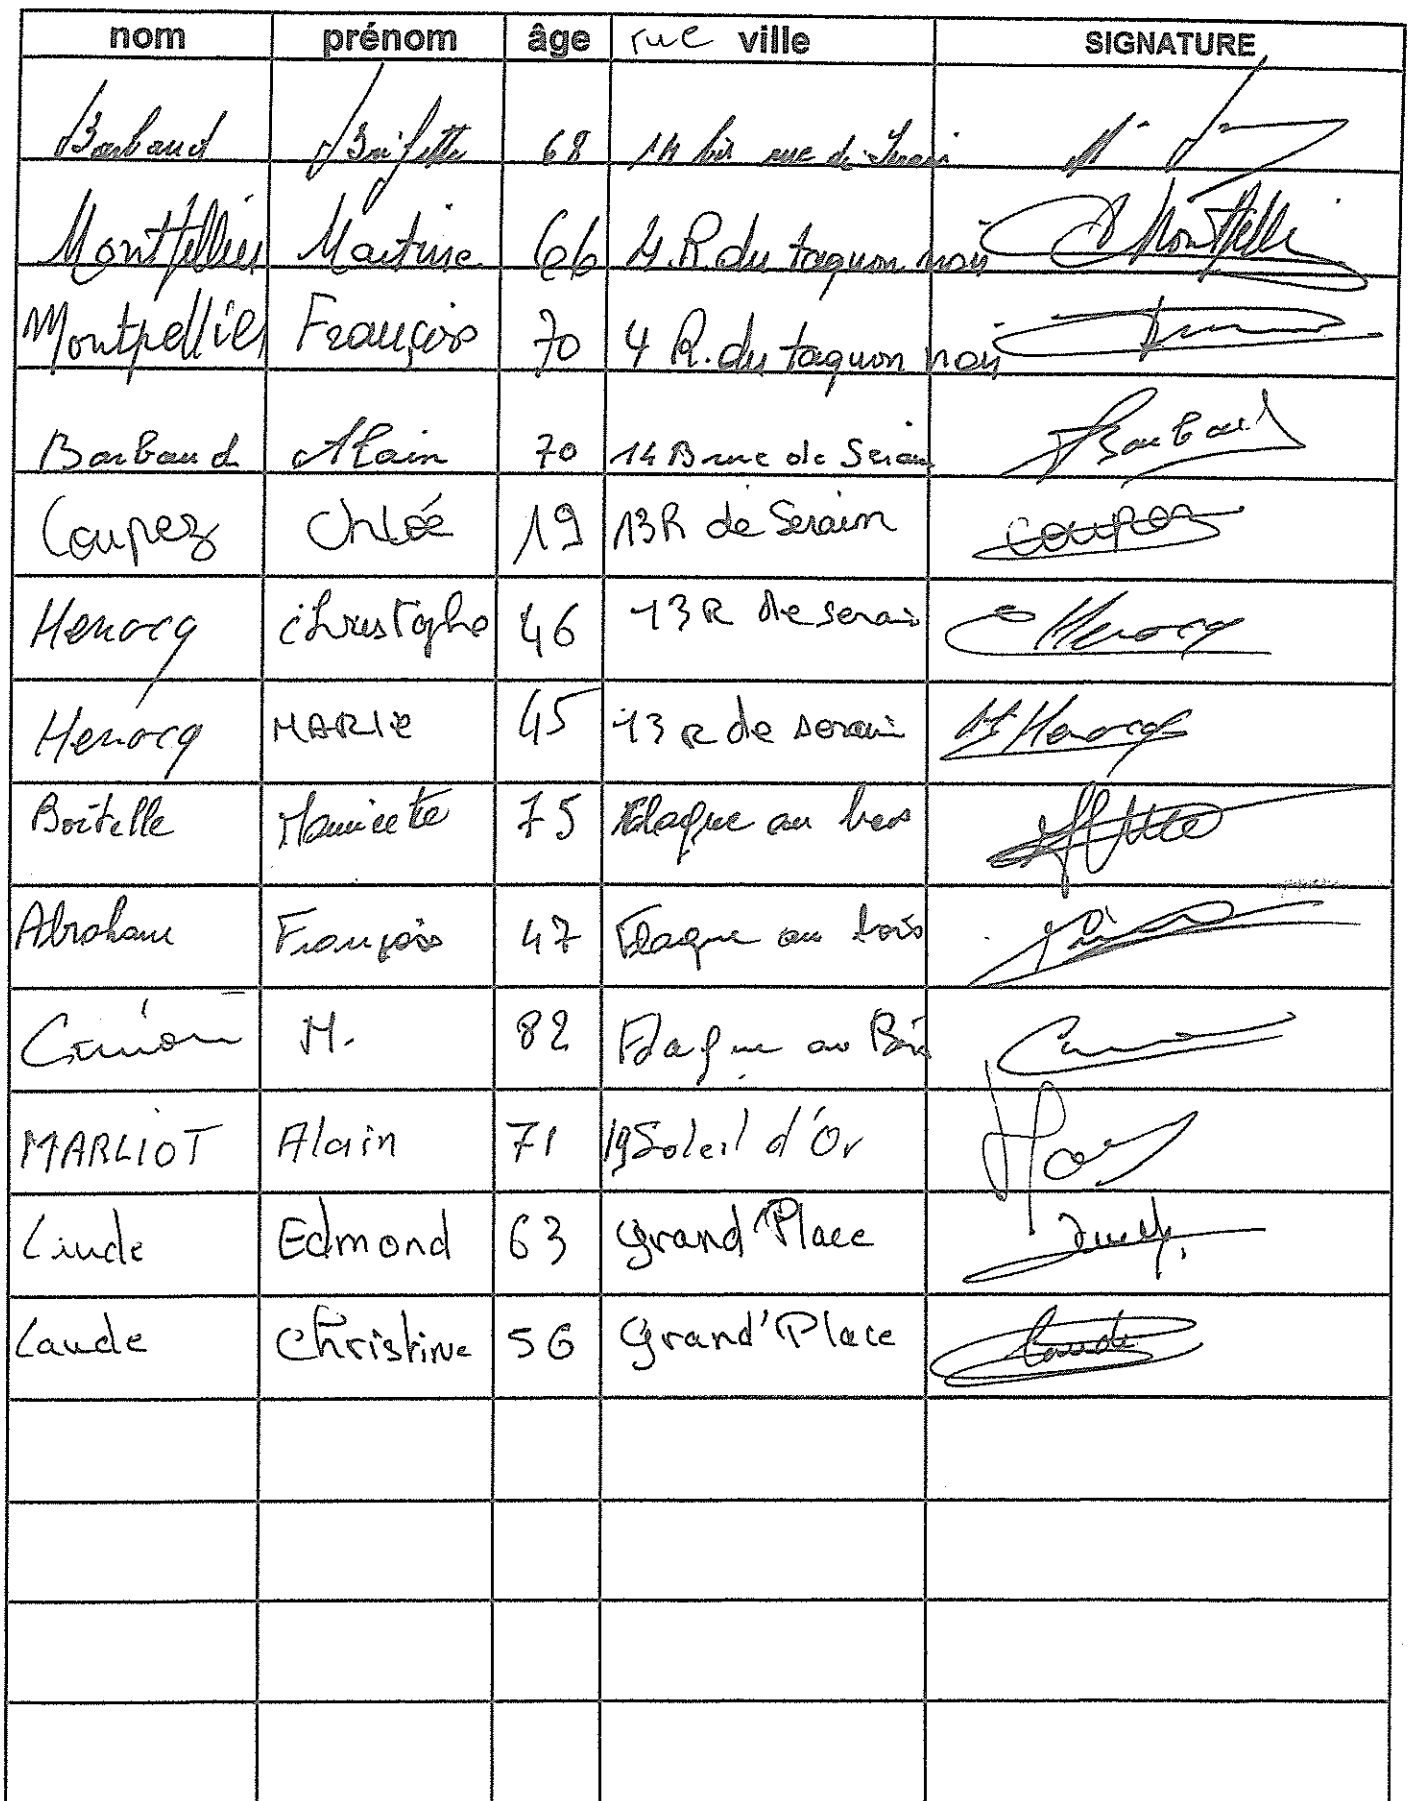 nom prénom âge rue ville SIGNATURE
Barbaud Brigitte 68 14 bis rue de Serain
Montpellier Martine 66 4 R. du taquon noir Montpelli
Montpellier François 70 4 R. du taquon noir
Barbaud Alain 70 14 B rue de Serain Barbaud
Coupez Chloé 19 13 R de Serain Coupez
Henocq Christophe 46 13 R de Serain Henocq
Henocq MARIE 45 13 R de serain M Henocq
Boitelle Mauricette 75 Flaque au bois
Abraham François 47 Flaque au bois
M. 82 Flaque au Bois
MARLIOT Alain 71 19 Soleil d'Or
Edmond 63 Grand'Place
Laude Christine 56 Grand'Place Laude